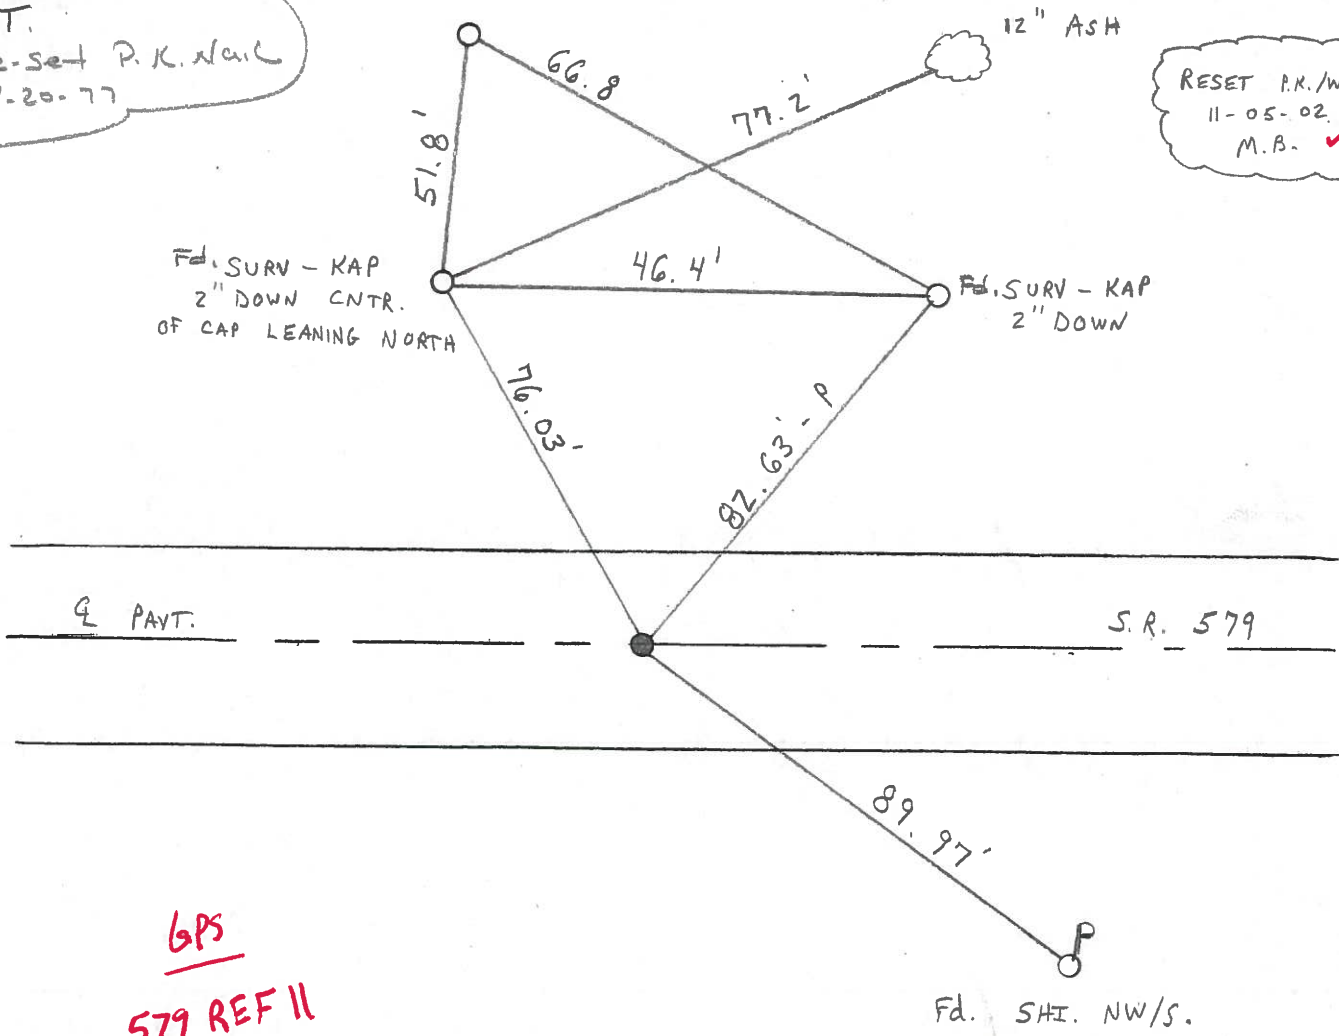 T.
P.K. Nail
-20-77
12" ASH
RESET P.K./W
11-05-02
M.B.
66.8
77.2'
51.8'
46.4'
Fd. SURV-KAP
2" DOWN CNTR.
OF CAP LEANING NORTH
Fd. SURV-KAP
2" DOWN
76.03'
82.63'-P
℄ PAVT.
S.R. 579
89.97'
GPS
579 REF 11
Fd. SHI. NW/S.